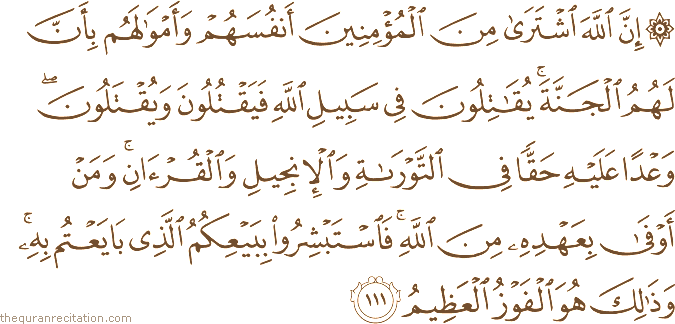 ۞ إِنَّ ٱللَّهَ ٱشْتَرَىٰ مِنَ ٱلْمُؤْمِنِينَ أَنفُسَهُمْ وَأَمْوَٰلَهُم بِأَنَّ
لَهُمُ ٱلْجَنَّةَ ۚ يُقَٰتِلُونَ فِى سَبِيلِ ٱللَّهِ فَيَقْتُلُونَ وَيُقْتَلُونَ ۖ
وَعْدًا عَلَيْهِ حَقًّا فِى ٱلتَّوْرَىٰةِ وَٱلْإِنجِيلِ وَٱلْقُرْءَانِ ۚ وَمَنْ
أَوْفَىٰ بِعَهْدِهِۦ مِنَ ٱللَّهِ ۚ فَٱسْتَبْشِرُوا۟ بِبَيْعِكُمُ ٱلَّذِى بَايَعْتُم بِهِۦ ۚ
وَذَٰلِكَ هُوَ ٱلْفَوْزُ ٱلْعَظِيمُ ١١١
thequranrecitation.com